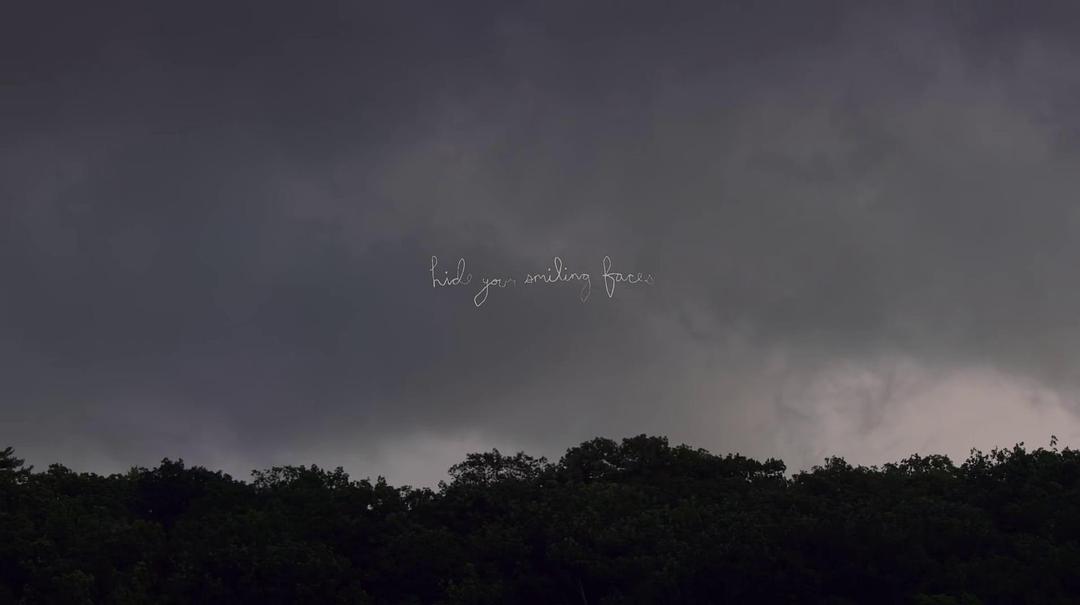 hide your smiling faces